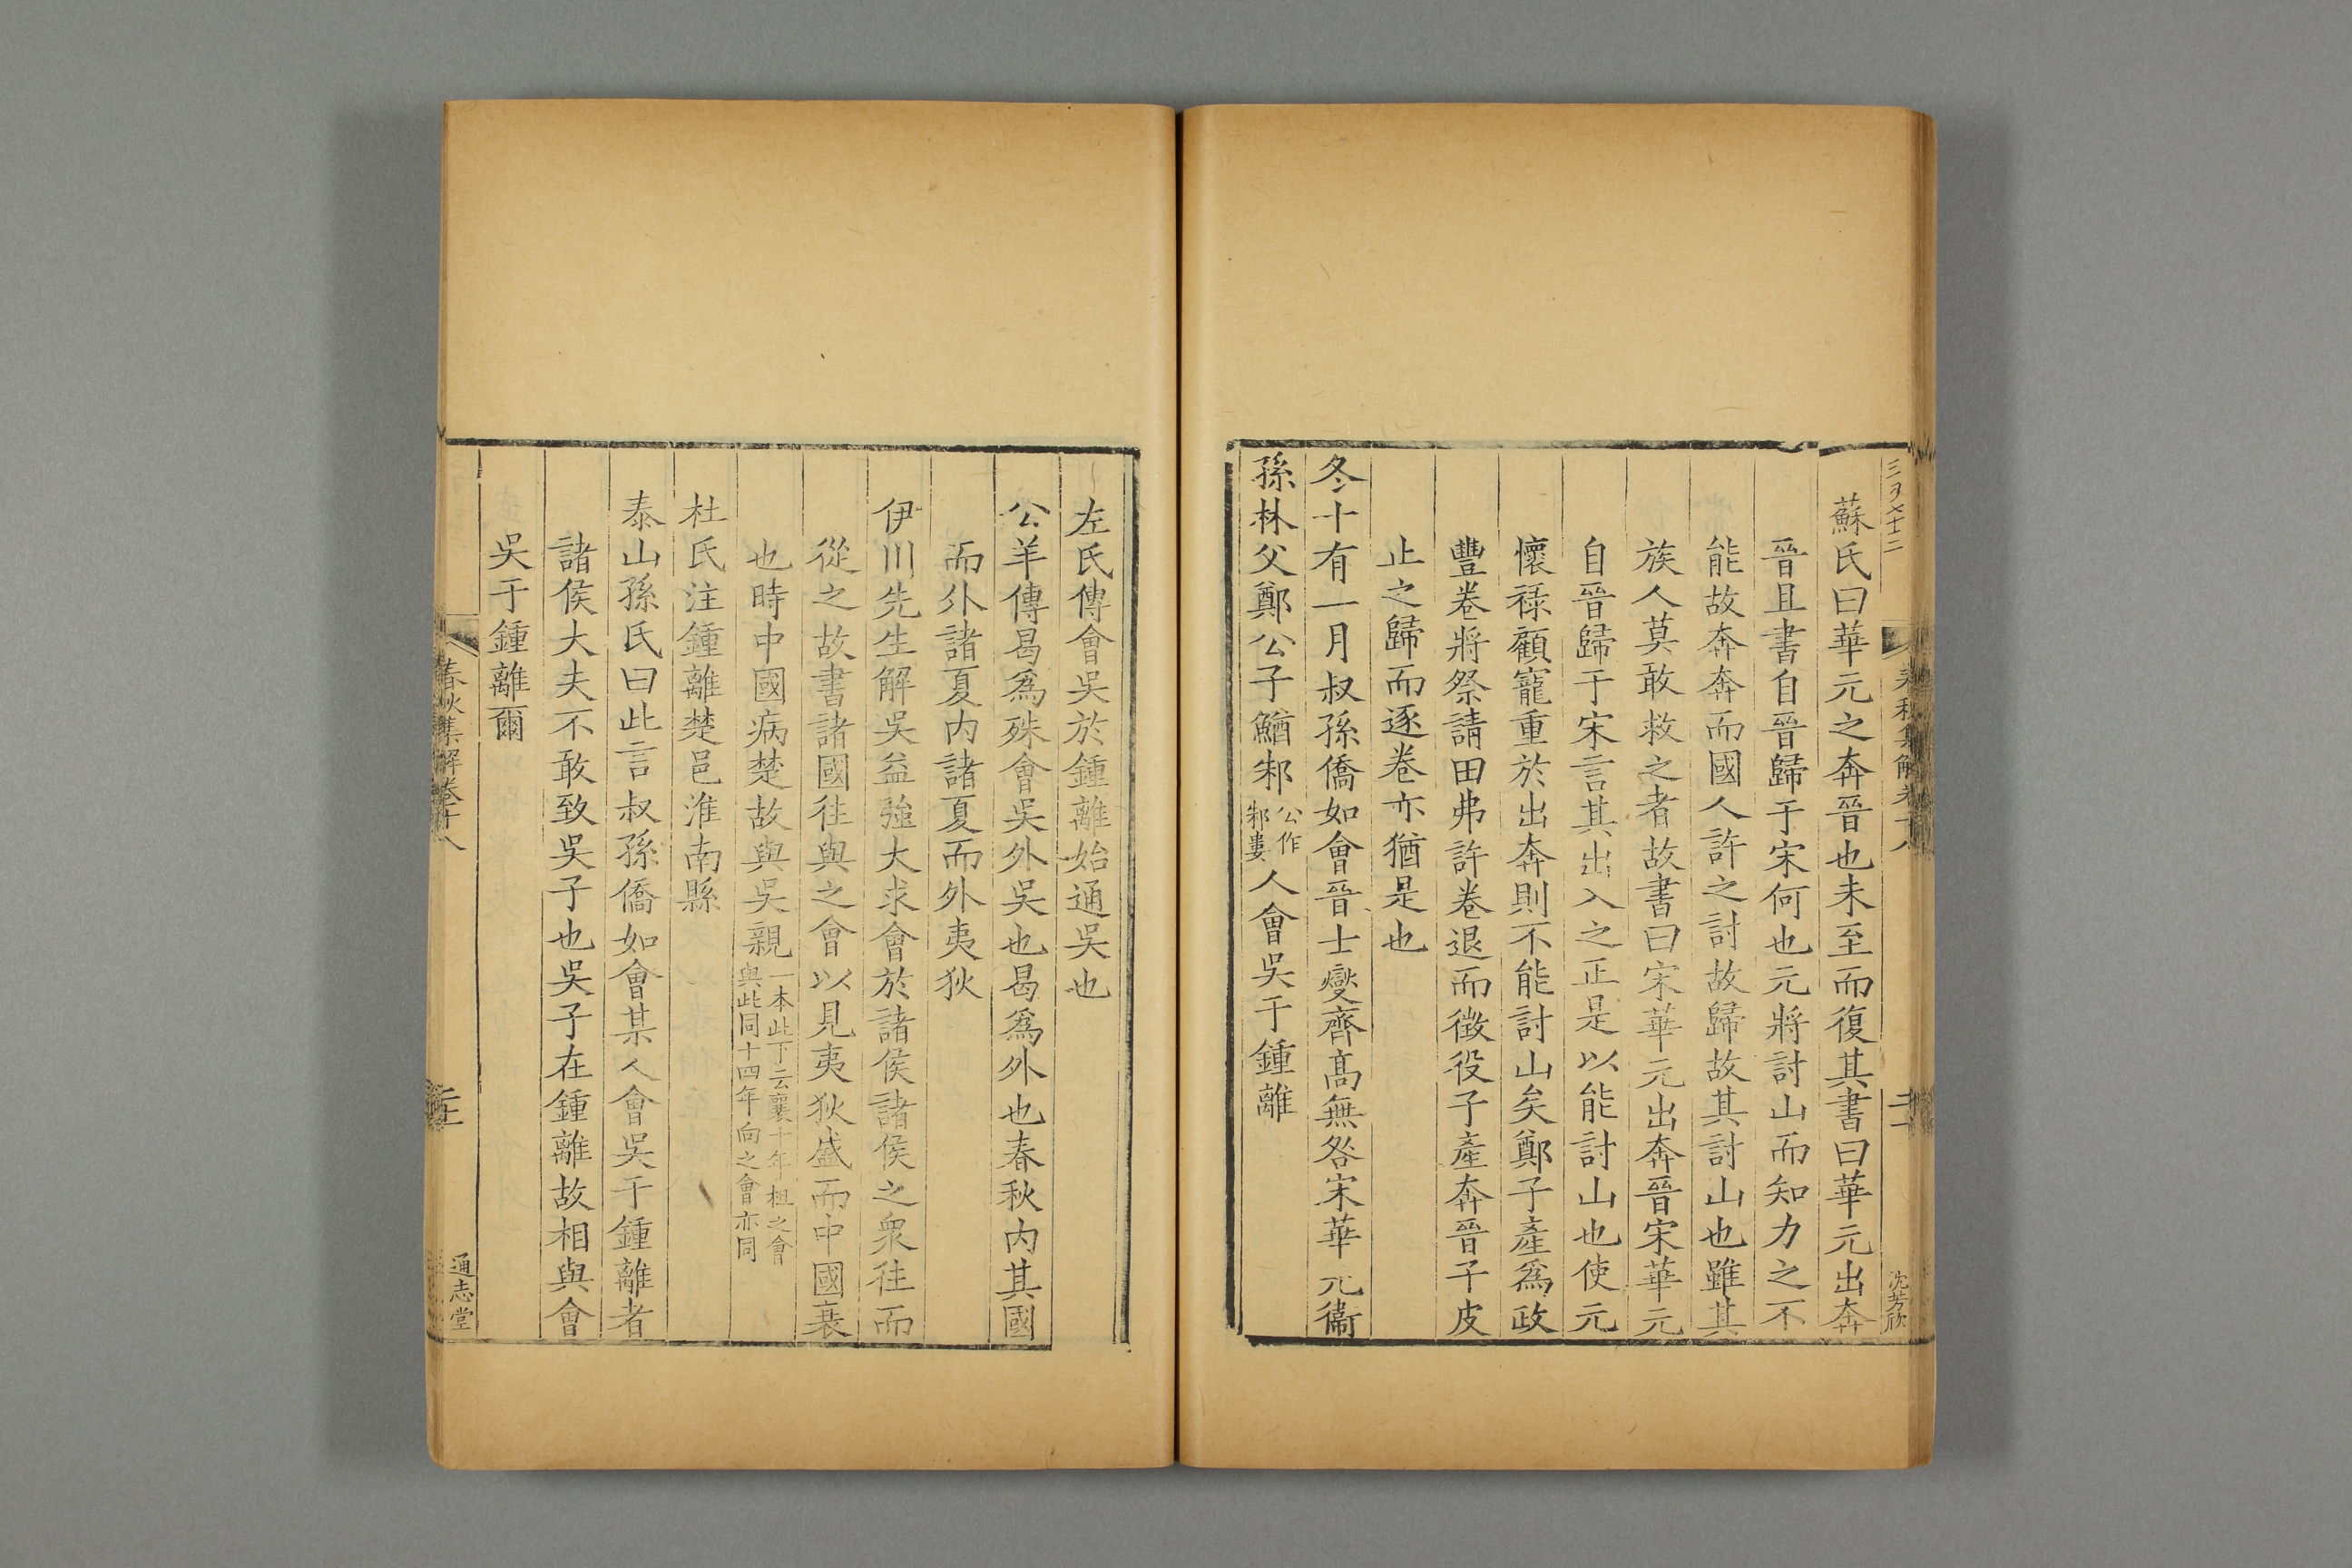 蘇氏曰華元之奔晉也未至而復其書曰華元出奔
晉且書自晉歸于宋何也元將討山而知力之不
能故奔奔而國人許之討故歸故其討山也雖其
族人莫敢救之者故書曰宋華元出奔晉宋華元
自晉歸于宋言其出入之正是以能討山也使元
懷祿顧寵重於出奔則不能討山矣鄭子產爲政
豐卷將祭請田弗許卷退而徵役子產奔晉子皮
止之歸而逐卷亦猶是也
冬十有一月叔孫僑如會晉士燮齊高無咎宋華元衞
孫林父鄭公子鰌邾公作邾婁人會吳于鍾離
沈芳欣
左氏傳會吳於鍾離始通吳也
公羊傳曷爲殊會吳外吳也曷爲外也春秋內其國
而外諸夏內諸夏而外夷狄
伊川先生解吳益強大求會於諸侯諸侯之衆往而
從之故書諸國往與之會以見夷狄盛而中國衰
也時中國病楚故與吳親一本此下云襄十年柤之會與此同十四年向之會亦同
杜氏注鍾離楚邑淮南縣
泰山孫氏曰此言叔孫僑如會某人會吳于鍾離者
諸侯大夫不敢致吳子也吳子在鍾離故相與會
吳于鍾離爾
春秋集解卷十八
通志堂